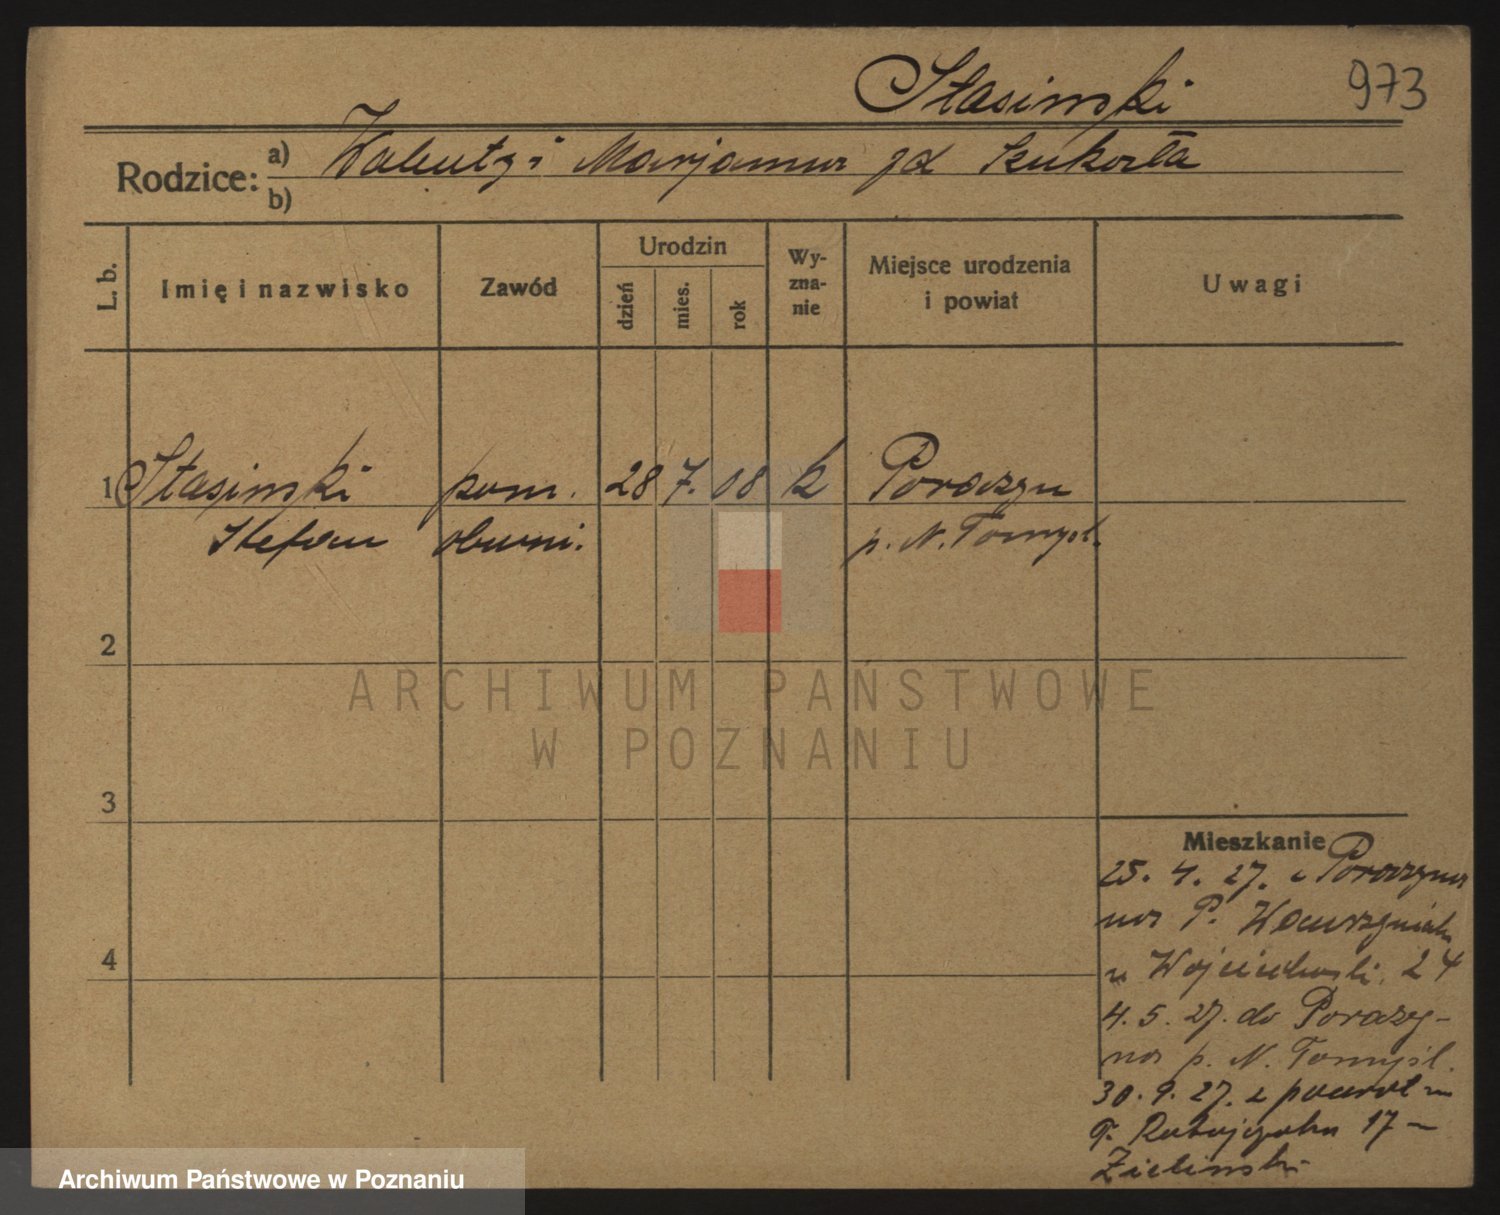 Stasinski 973
Rodzice: a) Walenty i Marjanna zd Szukała
b)
L. b. Imię i nazwisko Zawód Urodzin dzień mies. rok Wy-zna-nie Miejsce urodzenia i powiat Uwagi
1 Stasinski pom. 28 7. 08 k Porażyn
Stefan p. N. Tomyśl.
2
3
4
Mieszkanie
25. 4. 27. z Porażyna
na P. Wawrzyniak
Wojciechowski 24
4. 5. 27. do Poraży-
na p. N. Tomyśl.
30. 9. 27. z powrot
P. Ratajczaka 17 -
Zielinski
ARCHIWUM PAŃSTWOWE
W POZNANIU
Archiwum Państwowe w Poznaniu